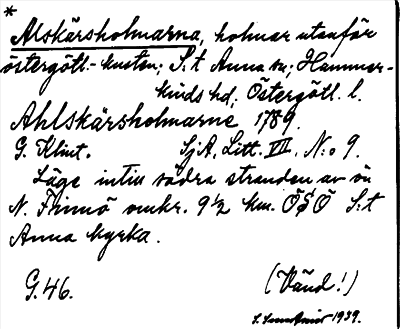 *
Alskärsholmarna, holmar utanför
östergötl.-kusten; S:t Anna sn; Hammar-
kinds hd, Östergötl. l.
Ahlskärsholmarne 1789.
G. Klint. SjA, Litt. VII, N:o 9.
Läge intill södra stranden av ön
N. Finnö omkr. 9 1/2 km. ÖSÖ S:t
Anna kyrka.
G. 46. (Vänd!)
1939.